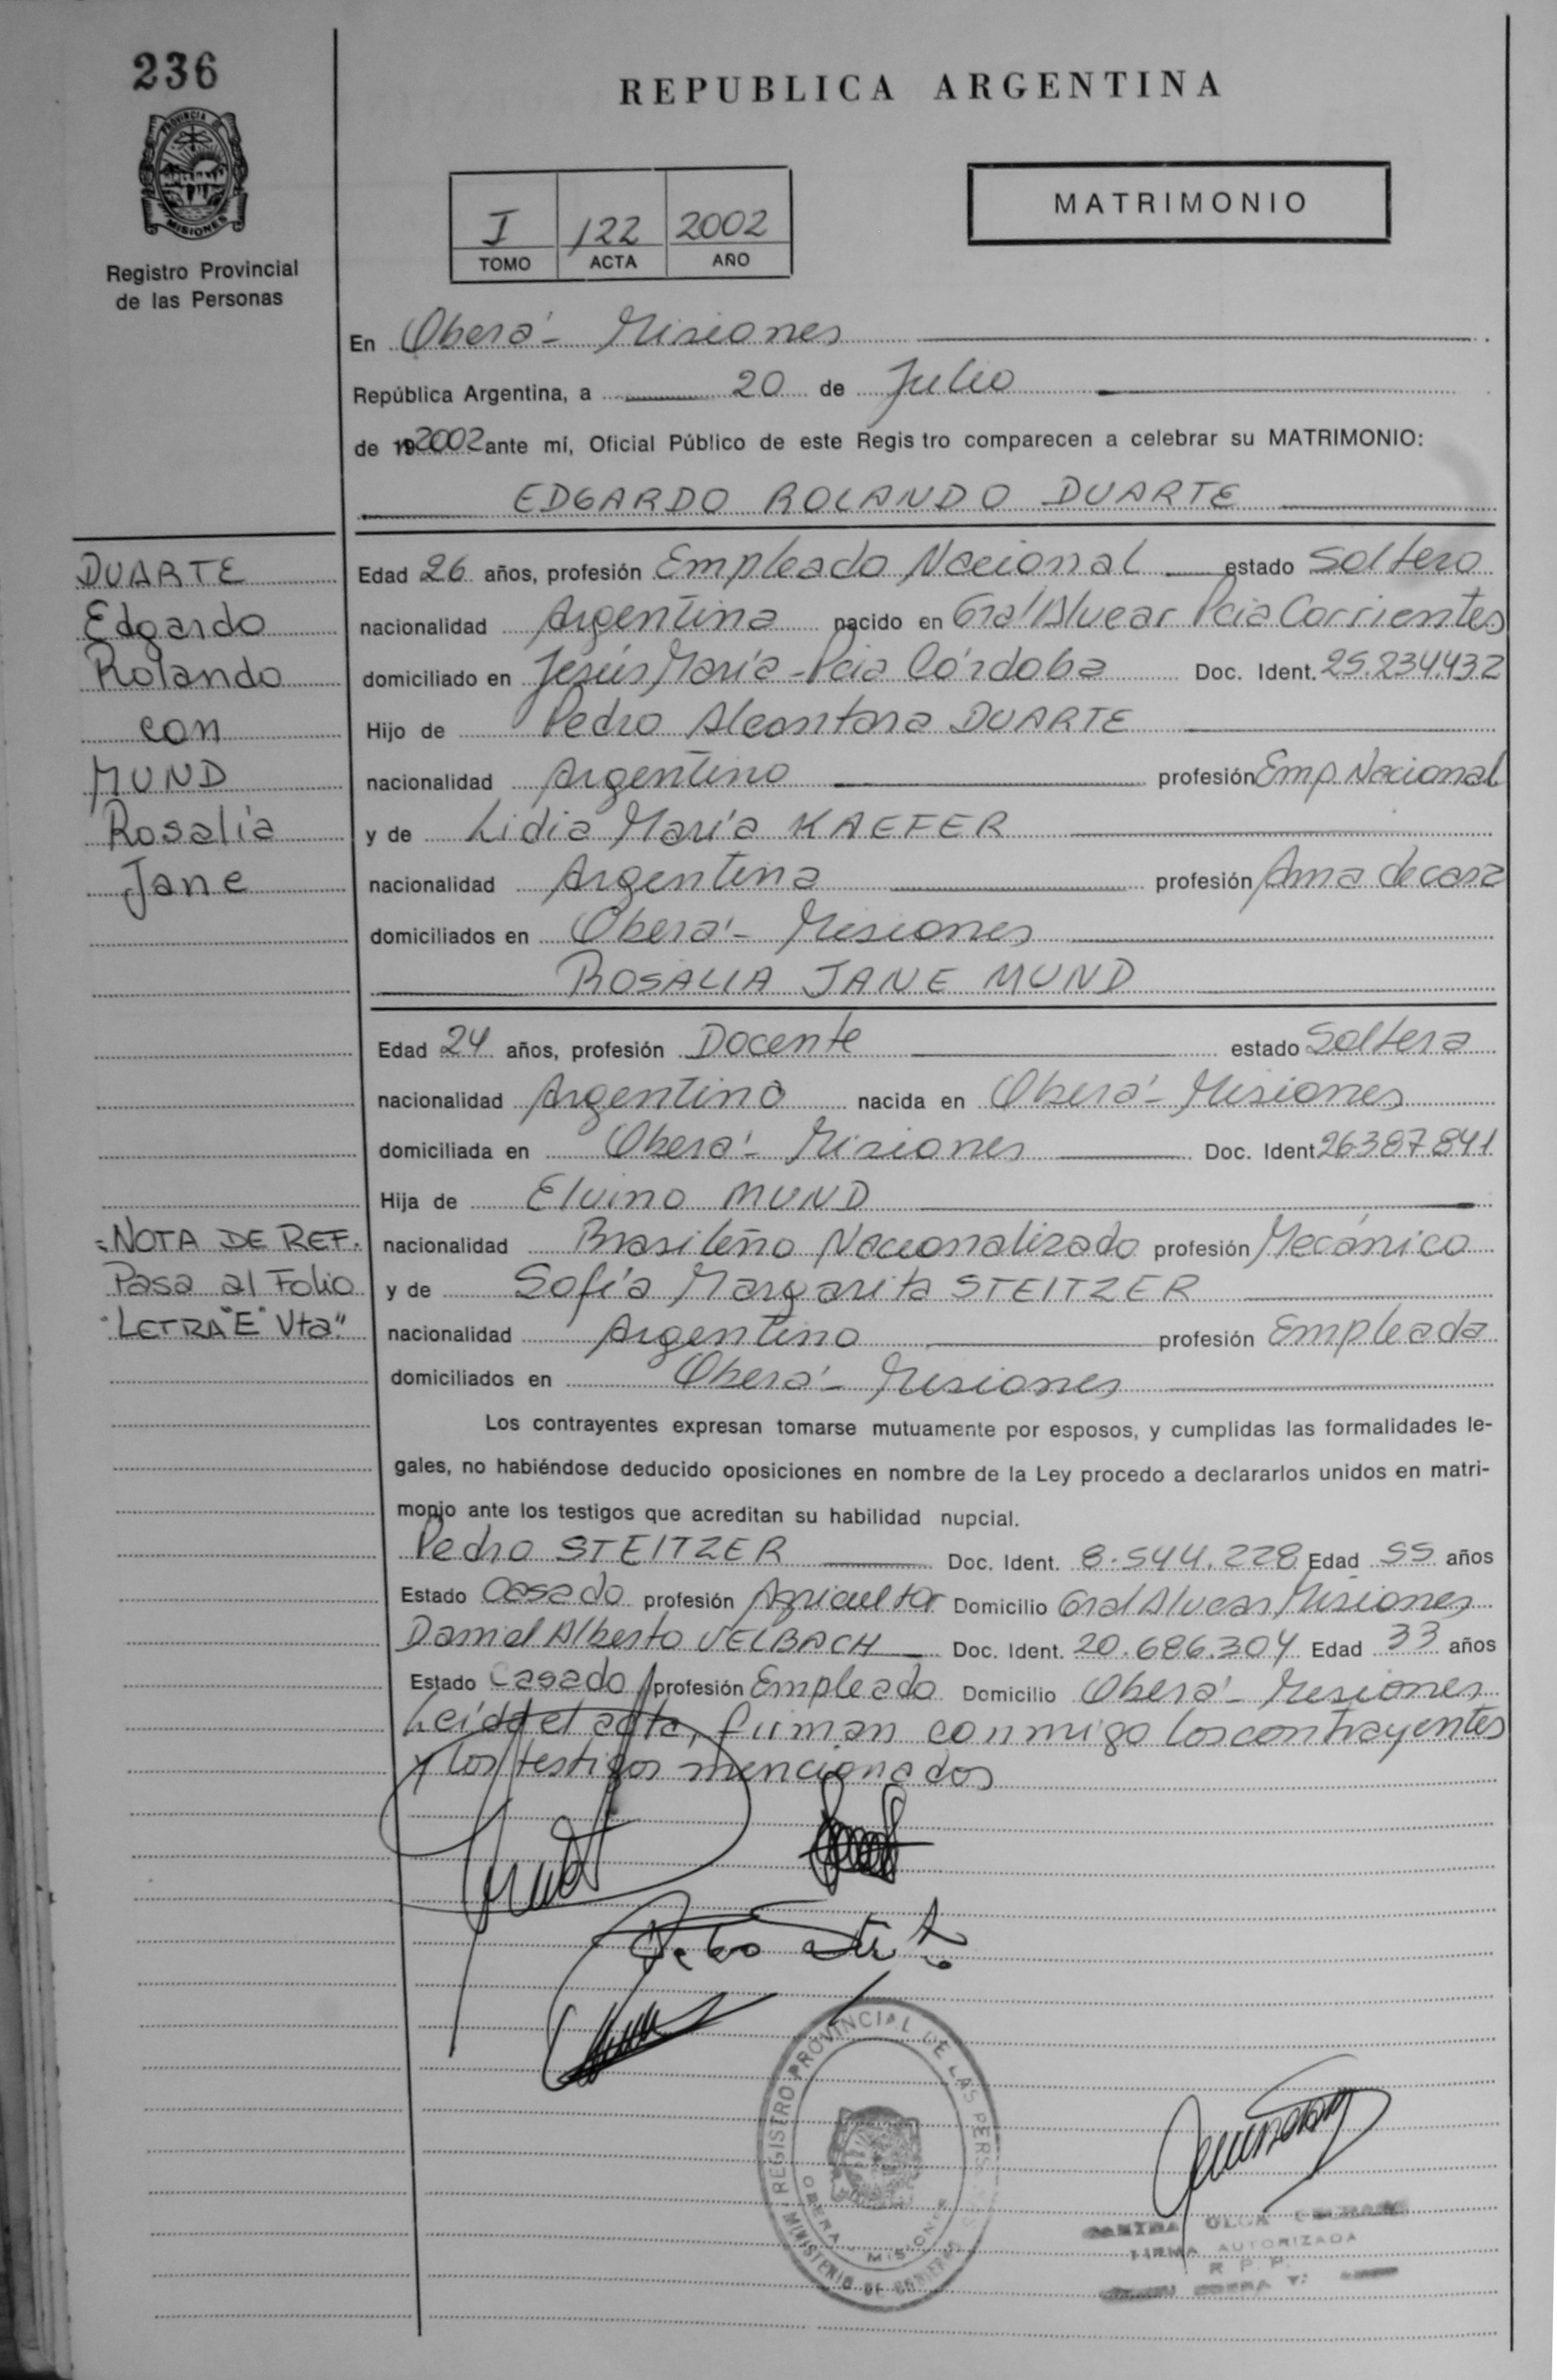 236
REPUBLICA ARGENTINA
PROVINCIA DE
MISIONES
Registro Provincial
de las Personas
I 122 2002
TOMO ACTA AÑO
MATRIMONIO
En Oberá - Misiones
República Argentina, a 20 de Julio
de 192002 ante mí, Oficial Público de este Regis tro comparecen a celebrar su MATRIMONIO:
EDGARDO ROLANDO DUARTE
DUARTE
Edgardo
Rolando
con
MUND
Rosalía
Jane
Edad 26 años, profesión Empleado Nacional estado Soltero
nacionalidad Argentina nacido en Gral Alvear Pcia Corrientes
domiciliado en Jesús María - Pcia Córdoba Doc. Ident. 25.234.432
Hijo de Pedro Alcantara DUARTE
nacionalidad Argentino profesión Emp. Nacional
y de Lidia María KAEFER
nacionalidad Argentina profesión Ama de casa
domiciliados en Oberá - Misiones
ROSALIA JANE MUND
Edad 24 años, profesión Docente estado Soltera
nacionalidad Argentina nacida en Oberá - Misiones
domiciliada en Oberá - Misiones Doc. Ident 26387841
Hija de Elvino MUND
nacionalidad Brasileño Nacionalizado profesión Mecánico
y de Sofía Margarita STEITZER
nacionalidad Argentina profesión Empleada
domiciliados en Oberá - Misiones
NOTA DE REF.
Pasa al Folio
"LETRA "E" Vta."
Los contrayentes expresan tomarse mutuamente por esposos, y cumplidas las formalidades le-
gales, no habiéndose deducido oposiciones en nombre de la Ley procedo a declararlos unidos en matri-
monio ante los testigos que acreditan su habilidad nupcial.
Pedro STEITZER Doc. Ident. 8.544.228 Edad 55 años
Estado Casado profesión Agricultor Domicilio Gral Alvear Misiones
Daniel Alberto VELBACH Doc. Ident. 20.686.304 Edad 33 años
Estado Casado profesión Empleado Domicilio Oberá - Misiones
Leída el acta, firman conmigo los contrayentes
y los testigos mencionados
REGISTRO PROVINCIAL DE LAS PERSONAS
OBERA - MISIONES
MINISTERIO DE GOBIERNO
OLGA
FIRMA AUTORIZADA
R P P
OBERA